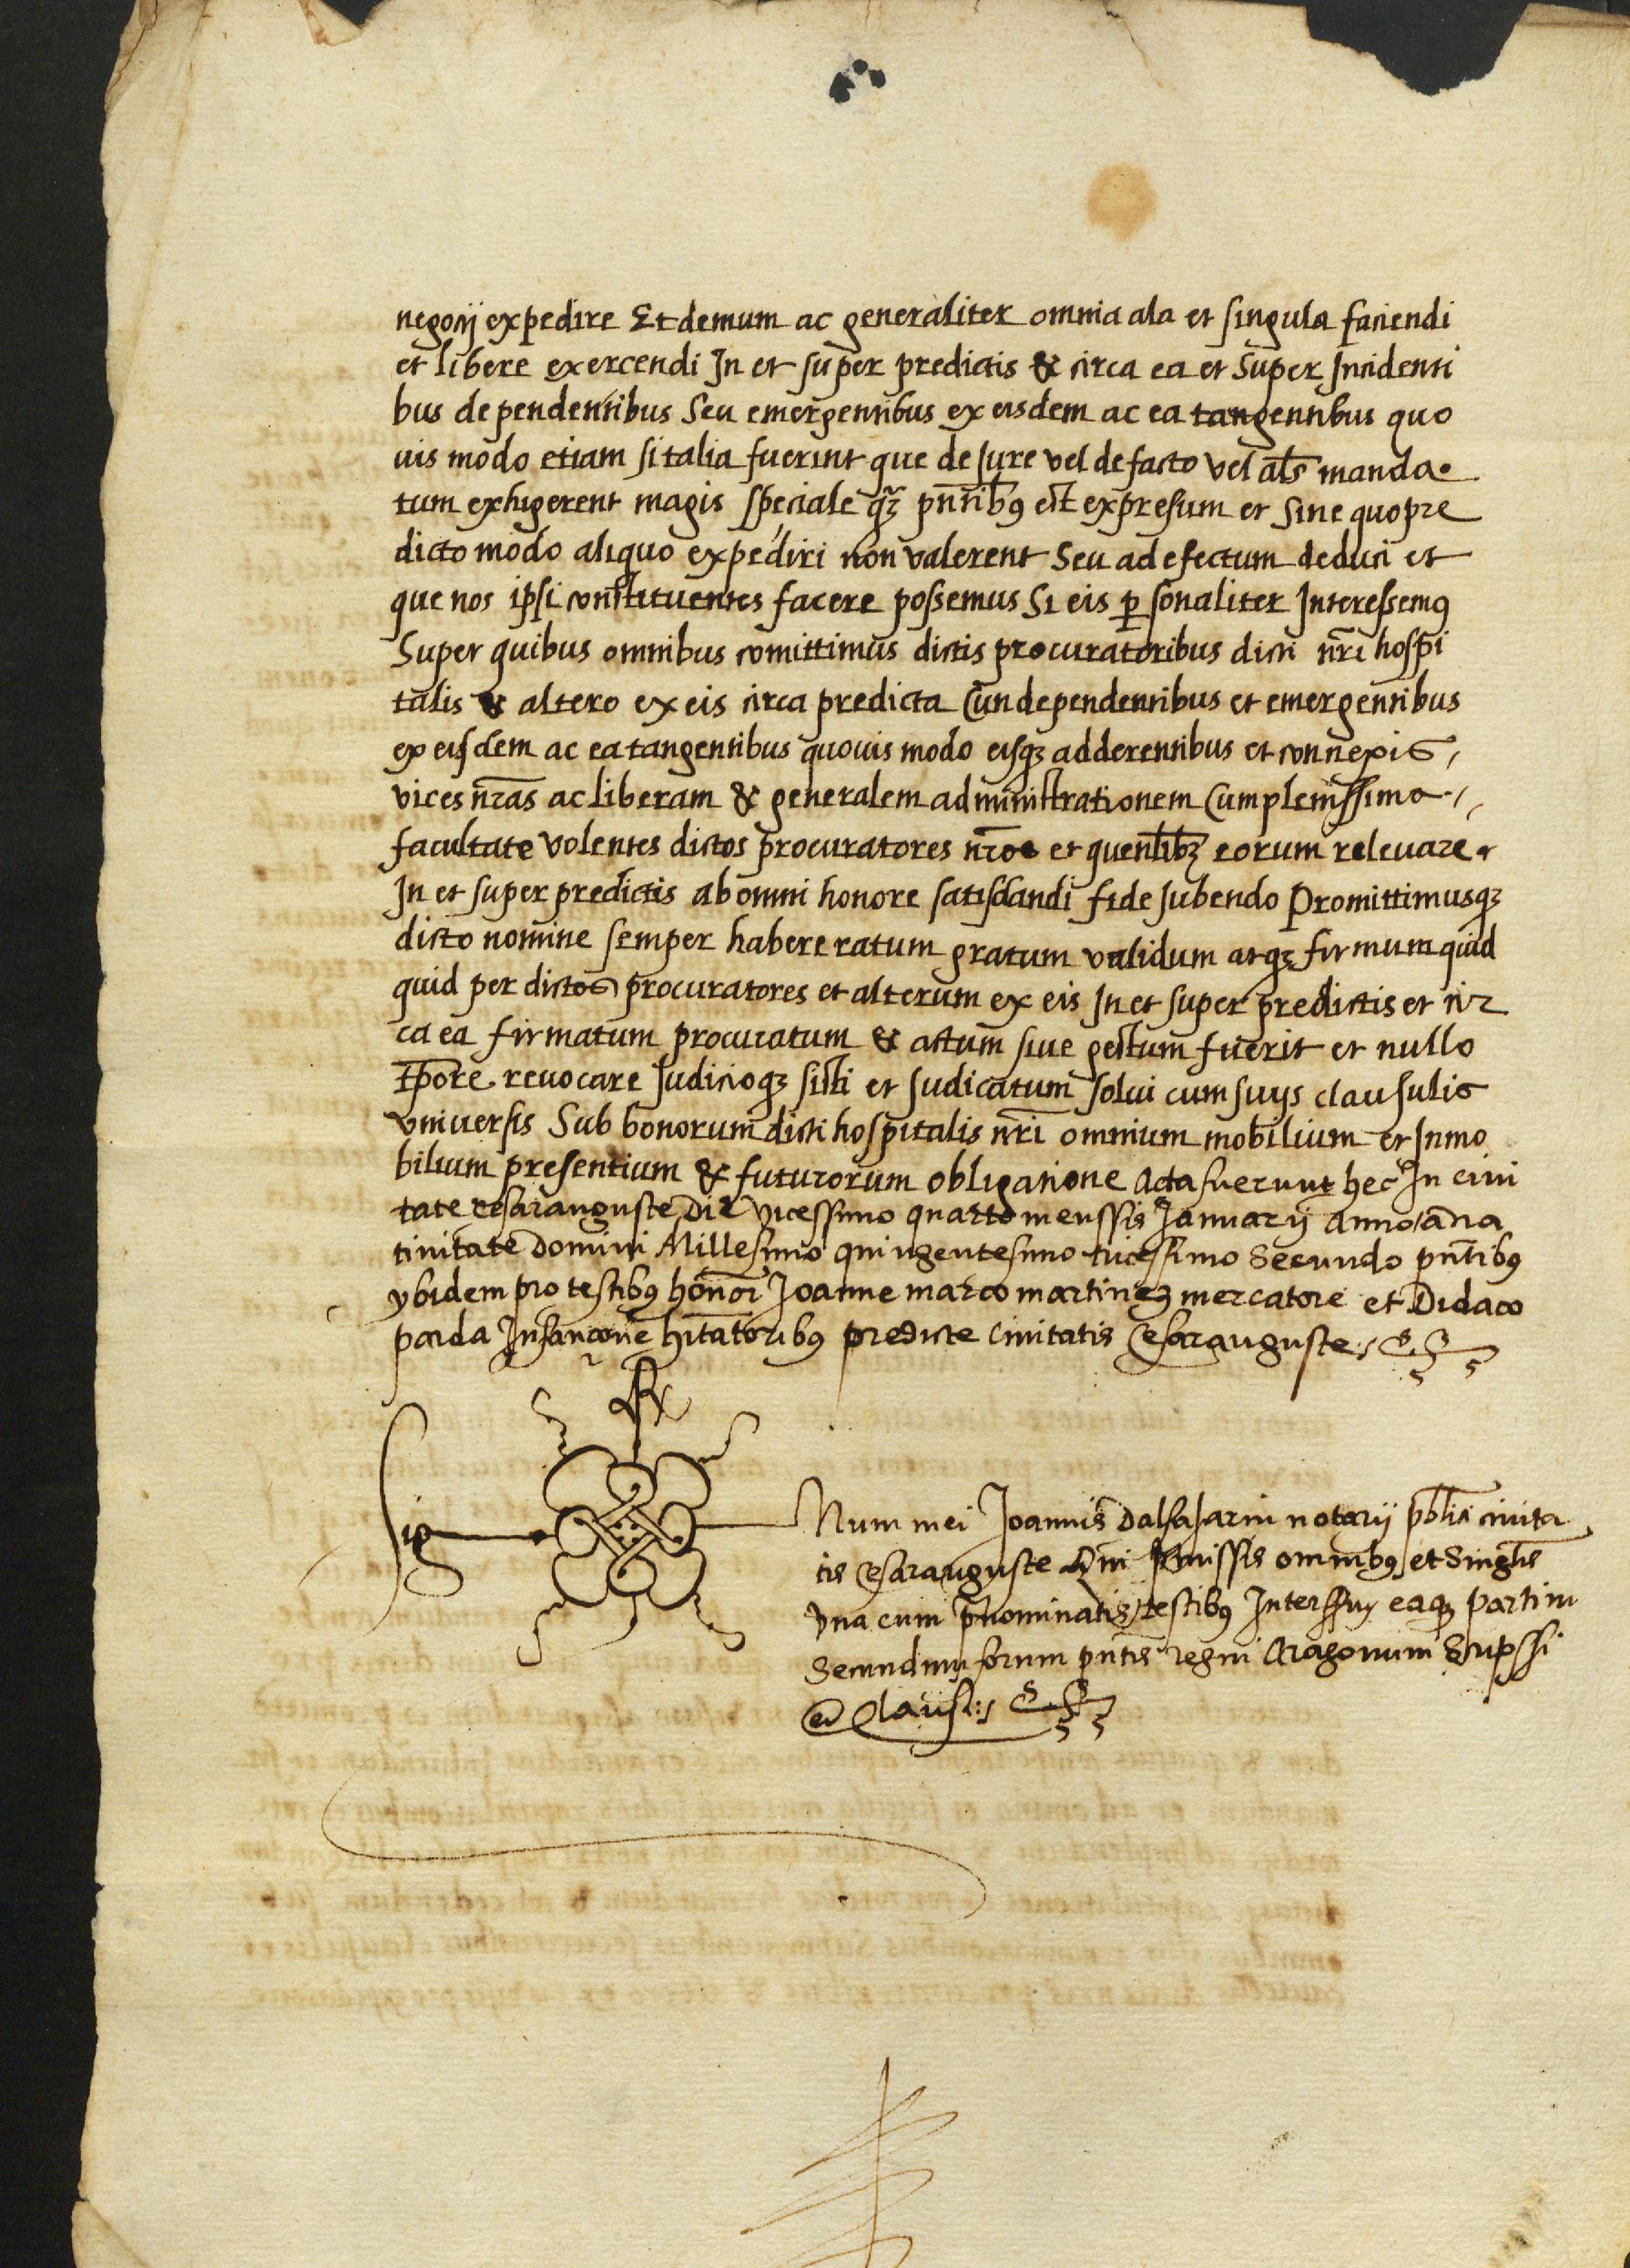 negocij expedire Et demum ac generaliter omnia ala et singula faciendi
et libere exercendi In et super predictis & circa ea et Super Incidenti
bus dependentibus Seu emergentibus ex eisdem ac ea tangentibus quo
uis modo etiam si talia fuerint que de Jure vel de facto vel als manda
tum exhigerent magis speciale qz pntibꝰ est expresum et Sine quo pre
dicto modo aliquo expediri non valerent Seu ad efectum deduci et
que nos ipsi constituentes facere possemus Si eis ꝑsonaliter Interessemꝰ
Super quibus omnibus comittimus dictis procuratoribus dicti nri hospi
talis & altero ex eis circa predicta Cun dependentibus et emergentibus
ex eisdem ac ea tangentibus quouis modo eisqz adderentibus et connexis,
vices nras ac liberam & generalem administrationem Cum plenissima
facultate volentes dictos procuratores nros et quenlibz eorum releuare
In et super predictis ab omni honore satisdandi fide Jubendo Promittimusqz
dicto nomine semper habere ratum gratum validum atqz firmum quid
quid per dictos procuratores et alterum ex eis In et super predictis et cir
ca ea firmatum procuratum & actum siue gestum fuerit et nullo
tpore reuocare Judicioqz sisti et Judicatum solui cum suys clausulis
vniuersis Sub bonorum dicti hospitalis nri omnium mobilium et Inmo
bilium presentium & futurorum obligatione Acta fuerunt hec In ciui
tate cesarauguste Die vicessimo quarto menssis Januarij Anno a na
tiuitate Domini Millesimo quingentesimo tricessimo Secundo pntibꝰ
ybidem pro testibꝰ honor Joanne marco martinez mercatore et Didaco
parda Infançone hitatoribꝰ predicte Ciuitatis Cesarauguste
Sig Num mei Joannis Dalfajarin notarij pblici ciuita
tis Cesarauguste Qui pmissis omnibꝰ et Singlis
vna cum pnominatis testibꝰ Interffuy eaqz partim
Secundum forum pntis regni Aragonum Scripssi
et Clausi